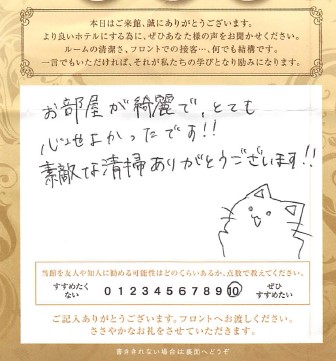 本日はご来館、誠にありがとうございます。
より良いホテルにする為に、ぜひあなた様の声をお聞かせください。
ルームの清潔さ、フロントでの接客…、何でも結構です。
一言でもいただければ、それが私たちの学びとなり励みになります。
お部屋が綺麗で、とても
心地よかったです!!
素敵な清掃ありがとうございます!!
当館を友人や知人に勧める可能性はどのくらいあるか、点数で教えてください。
すすめたくない 0 1 2 3 4 5 6 7 8 9 10 ぜひすすめたい
ご記入ありがとうございます。フロントへお渡しください。
ささやかなお礼をさせていただきます。
書ききれない場合は裏面へどうぞ